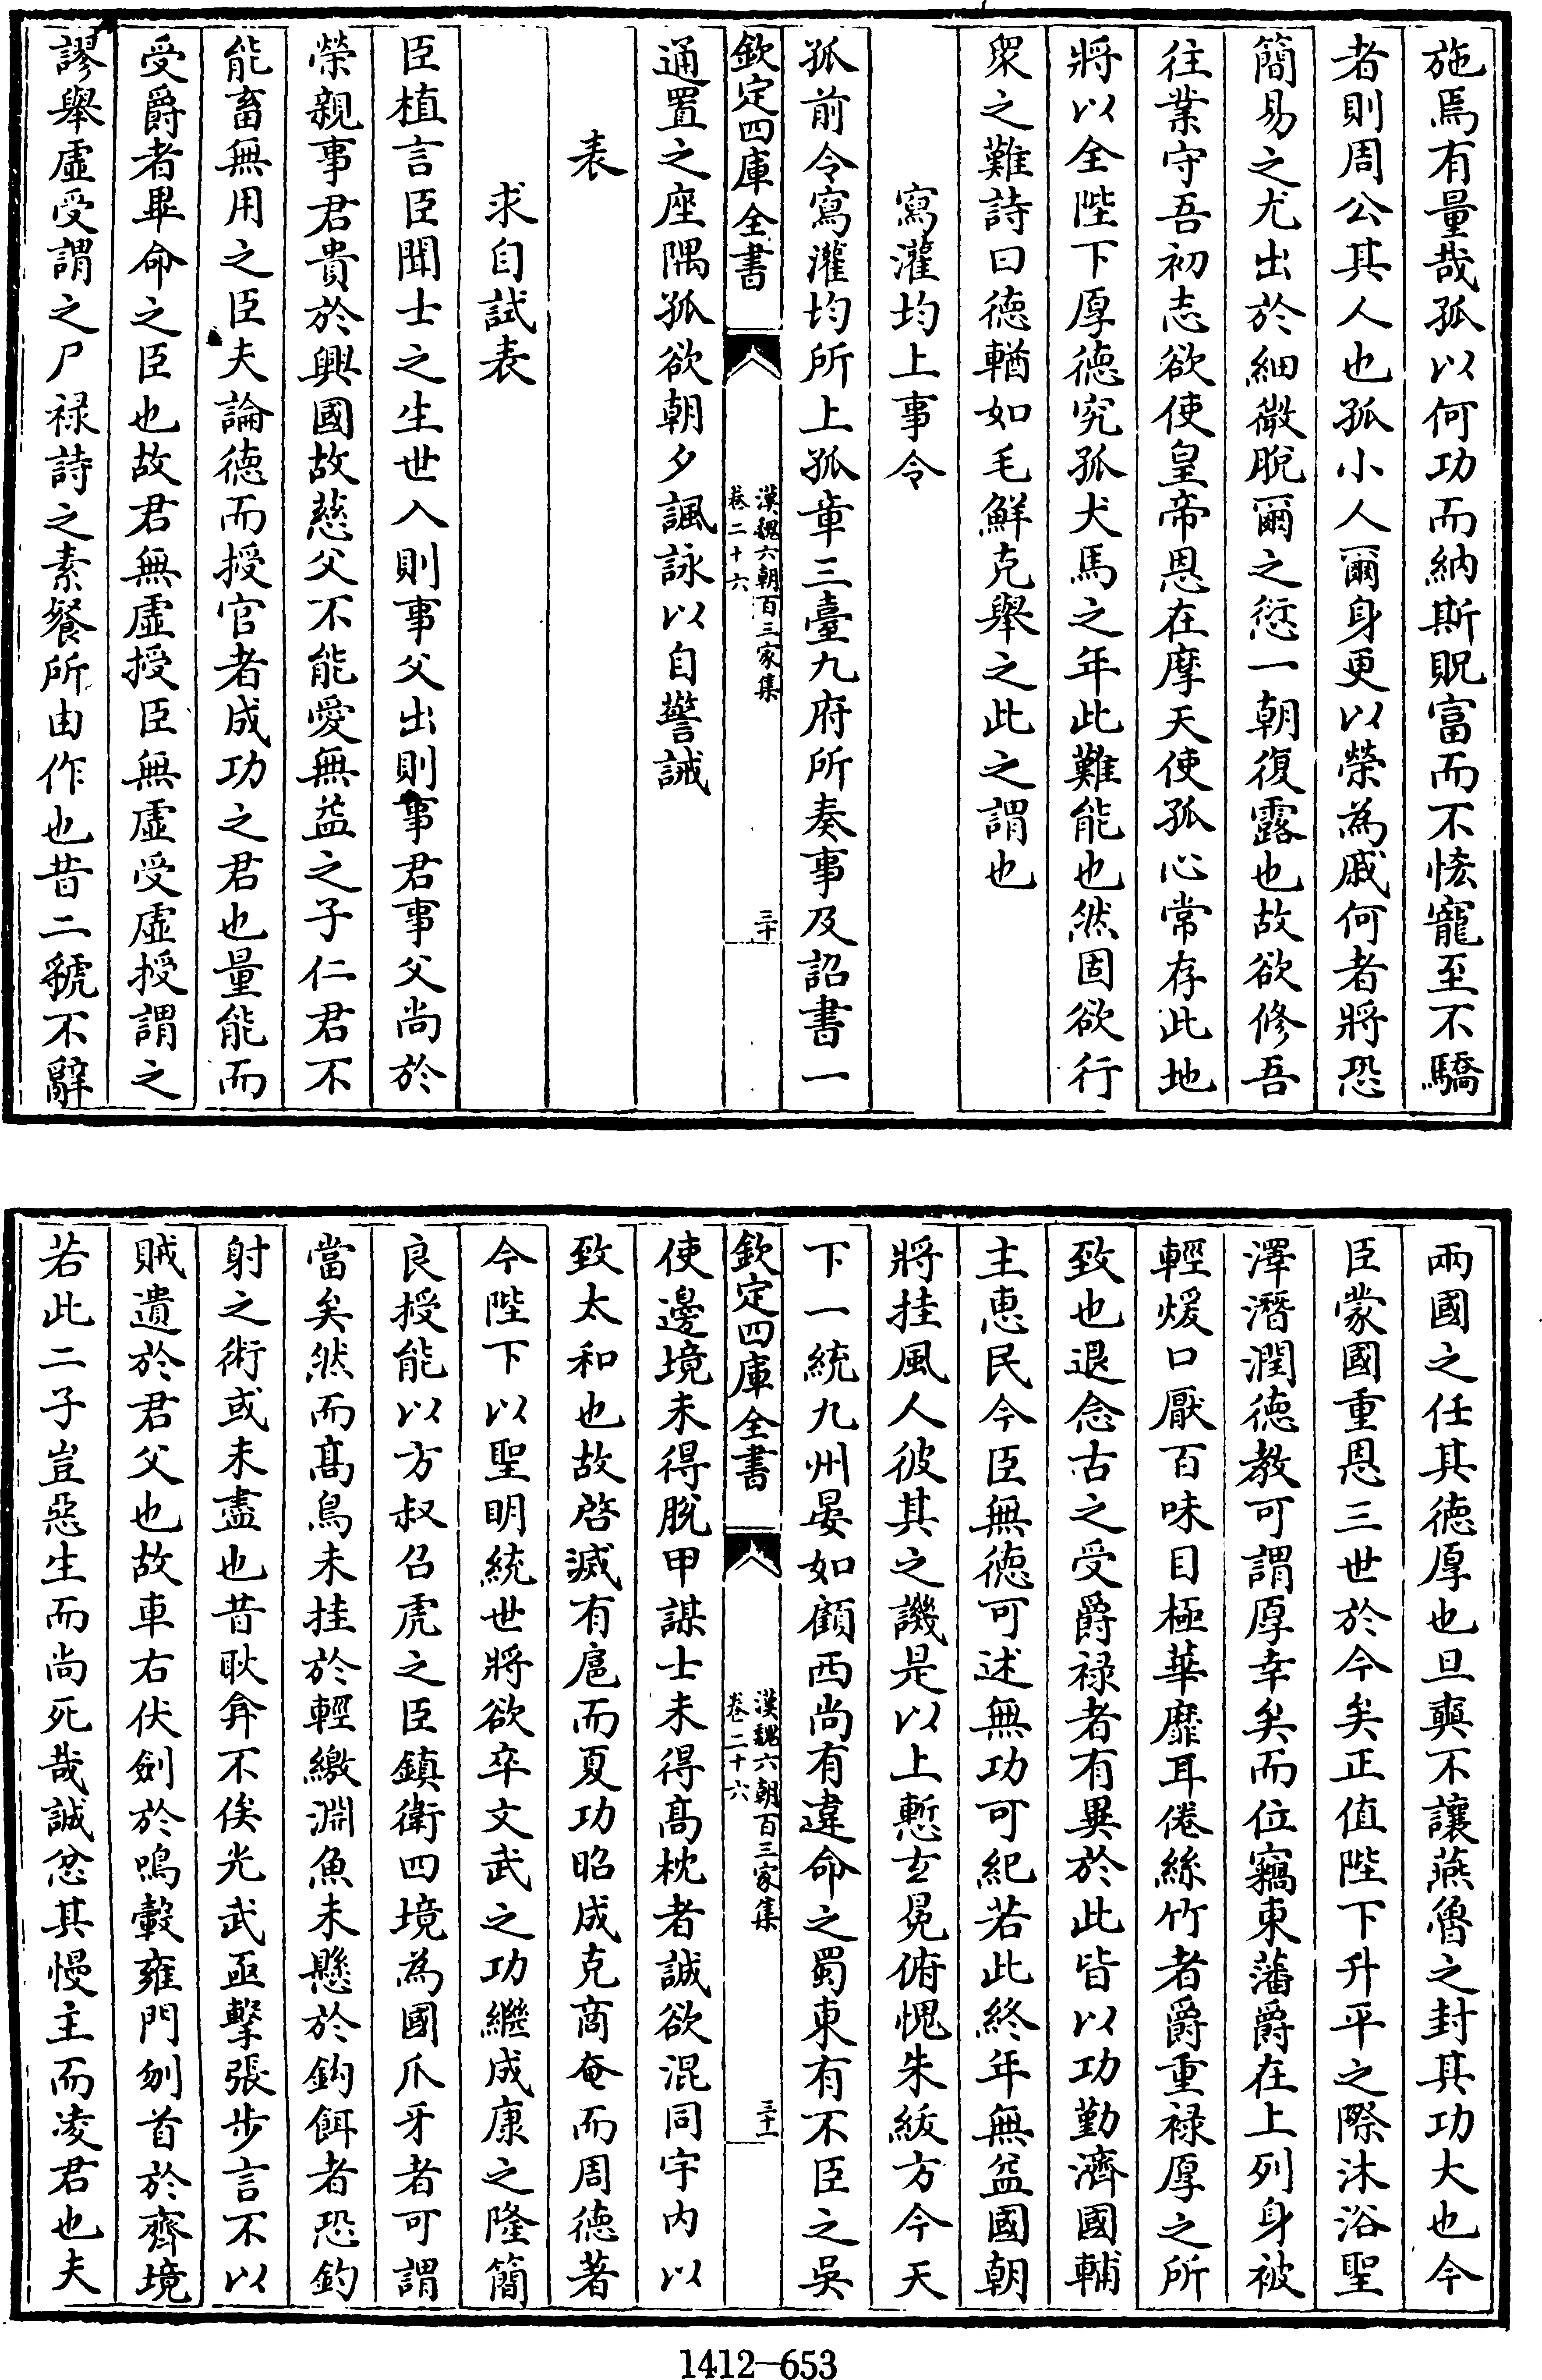 施焉有量哉孤以何功而納斯貺富而不恡寵至不驕
者則周公其人也孤小人爾身更以榮為戚何者將恐
簡易之尤出於細微脫爾之愆一朝復露也故欲修吾
往業守吾初志欲使皇帝恩在摩天使孤心常存此地
將以全陛下厚德究孤犬馬之年此難能也然固欲行
衆之難詩曰德輶如毛鮮克舉之此之謂也
寫灌均上事令
孤前令寫灌均所上孤章三臺九府所奏事及詔書一
欽定四庫全書
漢魏六朝百三家集
卷二十六
三十
通置之座隅孤欲朝夕諷詠以自警誡
表
求自試表
臣植言臣聞士之生世入則事父出則事君事父尚於
榮親事君貴於興國故慈父不能愛無益之子仁君不
能畜無用之臣夫論德而授官者成功之君也量能而
受爵者畢命之臣也故君無虛授臣無虛受虛授謂之
謬舉虛受謂之尸祿詩之素餐所由作也昔二虢不辭
兩國之任其德厚也旦奭不讓燕魯之封其功大也今
臣蒙國重恩三世於今矣正值陛下升平之際沐浴聖
澤潛潤德教可謂厚幸矣而位竊東藩爵在上列身被
輕煖口厭百味目極華靡耳倦絲竹者爵重祿厚之所
致也退念古之受爵祿者有異於此皆以功勤濟國輔
主惠民今臣無德可述無功可紀若此終年無益國朝
將挂風人彼其之譏是以上慙玄冕俯愧朱紱方今天
下一統九州晏如顧西尚有違命之蜀東有不臣之吳
欽定四庫全書
漢魏六朝百三家集
卷二十六
三十一
使邊境未得脫甲謀士未得高枕者誠欲混同宇內以
致太和也故啓滅有扈而夏功昭成克商奄而周德著
今陛下以聖明統世將欲卒文武之功繼成康之隆簡
良授能以方叔召虎之臣鎮衛四境為國爪牙者可謂
當矣然而高鳥未挂於輕繳淵魚未懸於鈎餌者恐釣
射之術或未盡也昔耿弇不俟光武亟擊張步言不以
賊遺於君父也故車右伏劍於鳴轂雍門刎首於齊境
若此二子豈惡生而尚死哉誠忿其慢主而凌君也夫
1412—653